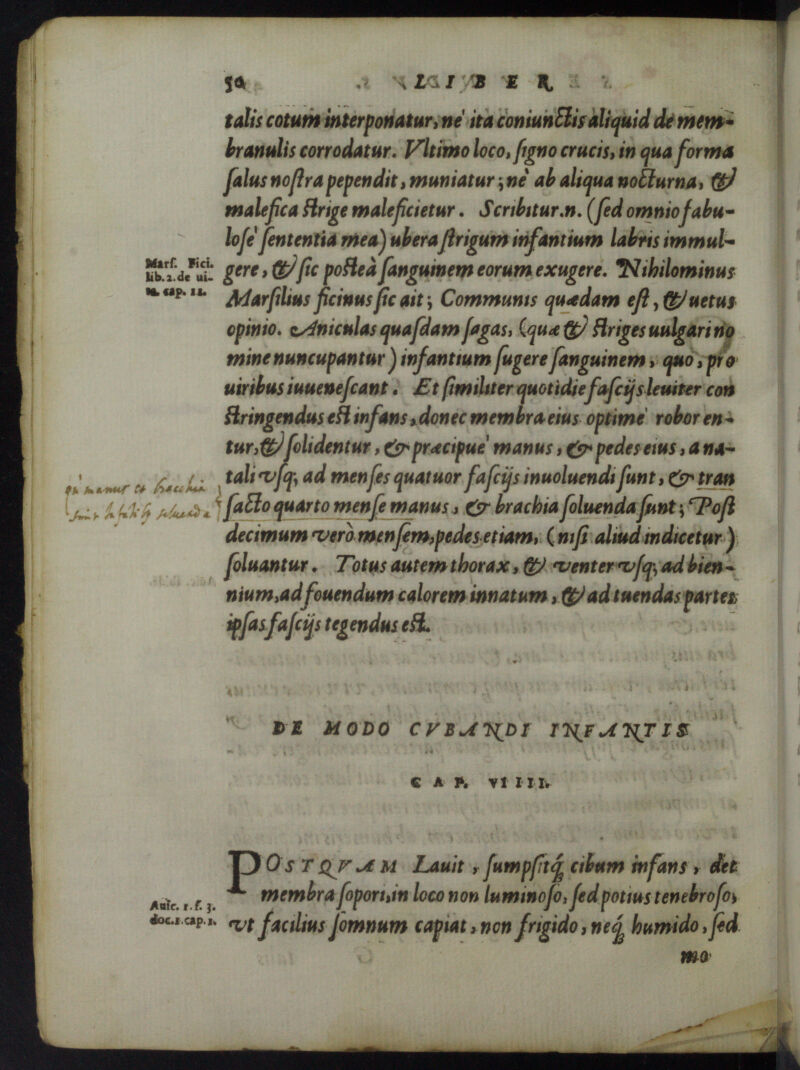 50 LIBER
talis cotum interponatur, ne' ita coniunctis aliquid de mem-
branulis corrodatur. Vltimo loco, signo crucis, in qua forma
salus nostra pependit, muniatur; ne' ab aliqua nocturna, &
malefica strige maleficietur. Scribitur.n. (sed omnio fabu-
lose' sententia mea) ubera strigum infantium labris immul-
Mars. Fici.
lib.2.de ui-
gere, & sic postea sanguinem eorum exugere. Nihilominus
cap. 11.
Marsilius ficinus sic ait; Communis quædam est, & uetus
opinio. Aniculas quasdam sagas, (quæ & striges uulgari no
mine nuncupantur) infantium sugere sanguinem, quo, pro
uiribus iuuenescant. Et similiter quotidie fascijs leuiter con
stringendus est infans, donec membra eius optime' roboren-
tur, & solidentur, & præcipue' manus, & pedes eius, a na-
tali vsq; ad menses quatuor fascijs inuoluendi sunt, & tran
manus et bracchia
sacto quarto mense manus, & brachia soluenda sunt; Post
decimum vero mensem, pedes etiam, (nisi aliud indicetur)
soluantur. Totus autem thorax, & venter vsq; ad bien-
nium, ad fouendum calorem innatum, & ad tuendas partes
ipsas fascijs tegendus est.
DE MODO CVBANDI INFANTIS
CAP. VIIII.
POSTQVAM Lauit, sumpsitq; cibum infans, det
membra sopori, in loco non luminoso, sed potius tenebroso,
Auic. 1. f. 3.
doc.1.cap.1.
vt facilius somnum capiat, non frigido, neq; humido, sed
mo